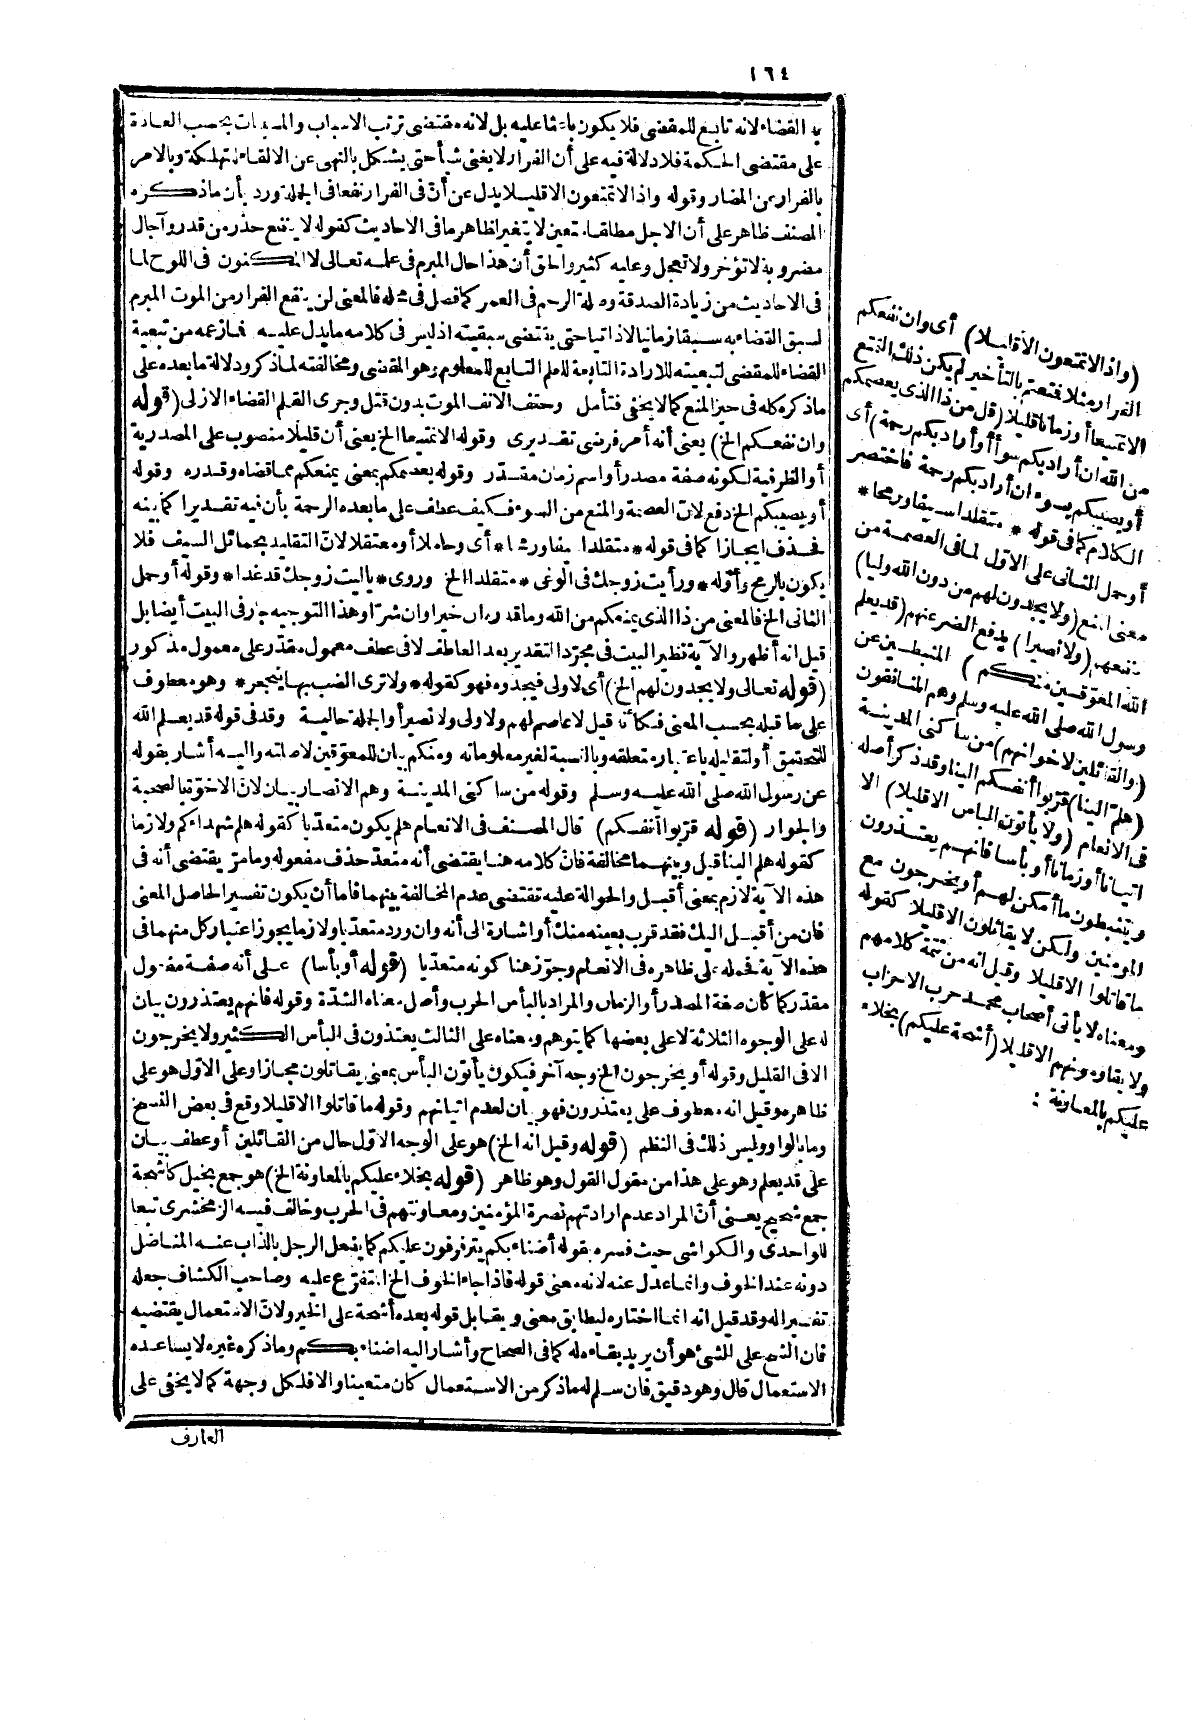 ١٦٤
به القضاء لانه تابع للمقضي فلا يكون باعثا عليه بل لانه مقتضى ترتب الاسباب والمسببات بحسب العادة
على مقتضى الحكمة فلا دلالة فيه على أن الفرار لا يغنى شيأ حتى يشكل بالنهى عن الالقاء للتهلكة وبالامر
بالفرار من المضار وقوله واذا لا تمتعون الا قليلا يدل عن أن فى الفرار نفعا فى الجملة ورد بأن ما ذكره
المصنف ظاهر على أن الاجل مطلقا متعين لا يتغير لظاهر ما فى الاحاديث كقوله لا ينفع حذر من قدر وآجال
مضروبة لا تؤخر ولا تعجل وعليه كثير والحق أن هذا حال المبرم فى علمه تعالى لا المكنون فى اللوح لما
فى الاحاديث من زيادة الصدقة وصلة الرحم فى العمر كما فصل فى محله فالمعنى لن ينفع الفرار من الموت المبرم
لسبق القضاء به سبقا زمانيا لا ذاتيا حتى يقتضى سبقيته اذ ليس فى كلامه ما يدل عليه فما زعمه من تبعية
القضاء للمقضى لتبعيته للارادة التابعة للعلم التابع للمعلوم وهو المقضى ومخالفته لما ذكر ودلالة ما بعده على
ما ذكره كله فى حيز المنع كما لا يخفى فتأمل وحتف الانف الموت بدون قتل وجرى القلم القضاء الازلى (قوله
وان نفعكم الخ) يعنى أنه أمر فرضى تقديرى وقوله الا تمتيعا الخ يعنى أن قليلا منصوب على المصدرية
أو الظرفية لكونه صفة مصدر أو اسم زمان مقدر وقوله يعصمكم بمعنى يمنعكم مما قضاه وقدره وقوله
أو يصيبكم الخ دفع لان العصمة والمنع من السوء فكيف عطف على ما بعده الرحمة بأن فيه تقديرا كما بينه
فحذف ايجازا كما فى قوله * متقلدا سيفا ورمحا * أى وحاملا أو معتقلا لان التقليد بحمائل السيف فلا
يكون بالرمح وأوله * ورأيت زوجك فى الوغى * متقلدا الخ وروى * يا ليت زوجك قد غدا * وقوله أو حمل
الثانى الخ فالمعنى من ذا الذى يمنعكم من الله وما قدره ان خيرا وان شرا وهذا التوجيه جار فى البيت أيضا بل
قيل انه أظهر والآية نظير البيت فى مجرد التقدير بعد العاطف لا فى عطف معمول مقدر على معمول مذكور
(قوله تعالى ولا يجدون لهم الخ) أى لا ولى فيجدوه فهو كقوله * ولا ترى الضب بها ينجحر * وهو معطوف
على ما قبله بحسب المعنى فكأنه قيل لا عاصم لهم ولا ولى ولا نصير أو الجملة حالية وقد فى قوله قد يعلم الله
للتحقيق أو لتقليله باعتبار متعلقه وبالنسبة لغير معلوماته ومنكم بيان للمعوقين لا صلته واليه أشار بقوله
عن رسول الله صلى الله عليه وسلم وقوله من ساكنى المدينة وهم الانصار بيان لان الاخوة بالصحبة
والجوار (قوله قربوا أنفسكم) قال المصنف فى الانعام هلم يكون متعديا كقوله هلم شهداءكم ولازما
كقوله هلم الينا قيل وبينهما مخالفة فان كلامه هنا يقتضى أنه متعد حذف مفعوله وما مر يقتضى أنه فى
هذه الآية لازم بمعنى أقبل والحوالة عليه تقتضى عدم المخالفة بينهما فاما أن يكون تفسيرا لحاصل المعنى
فان من أقبل اليك فقد قرب بعينه منك أو اشارة الى أنه وان ورد متعديا ولازما يجوز اعتبار كل منهما فى
هذه الآية فحمله على ظاهره فى الانعام وجوز هنا كونه متعديا (قوله أو بأسا) على أنه صفة مفعول
مقدر كما كان صفة المصدر أو الزمان والمراد بالبأس الحرب وأصل معناه الشدة وقوله فانهم يعتذرون بيان
له على الوجوه الثلاثة لا على بعضها كما يتوهم ومعناه على الثالث يعتذرون فى البأس الكثير ولا يخرجون
الا فى القليل وقوله أو يخرجون الخ وجه آخر فيكون يأتون البأس بمعنى يقاتلون مجازا وعلى الاول هو على
ظاهره وقيل انه معطوف على يعتذرون فهو بيان لعدم اتيانهم وقوله ما قاتلوا الا قليلا وقع فى بعض النسخ
وما بالوا وليس ذلك فى النظم (قوله وقيل انه الخ) هو على الوجه الاول حال من القائلين أو عطف بيان
على قد يعلم وهو على هذا من مقول القول وهو ظاهر (قوله بخلاء عليكم بالمعاونة الخ) هو جمع بخيل كأشحة
جمع شحيح يعنى أن المراد عدم ارادتهم نصرة المؤمنين ومعاونتهم فى الحرب وخالف فيه الزمخشرى تبعا
للواحدى والكواشى حيث فسره بقوله أضناء بكم يترفرفون عليكم كما يفعل الرجل بالذاب عنه المناضل
دونه عند الخوف وانما عدل عنه لانه معنى قوله فاذا جاء الخوف الخ المتفرع عليه وصاحب الكشاف جعله
تفسيرا له وقد قيل انه انما اختاره ليطابق معنى ويقابل قوله بعده أشحة على الخير ولان الاستعمال يقتضيه
فان الشح على الشئ هو أن يريد بقاءه له كما فى الصحاح وأشار اليه أضناء بكم وما ذكره غيره لا يساعده
الاستعمال قال وهو دقيق فان سلم له ما ذكر من الاستعمال كان متعينا والا فلكل وجهة كما لا يخفى على
العارف
(واذا لا تمتعون الا قليلا) أى وان نفعكم
الفرار مثلا فتمتعتم بالتأخير لم يكن ذلك التمتع
الا تمتيعا أو زمانا قليلا (قل من ذا الذى يعصمكم
من الله ان أراد بكم سوأ أو أراد بكم رحمة) أى
أو يصيبكم بسوء ان أراد بكم رحمة فاختصر
الكلام كما فى قوله * متقلدا سيفا ورمحا *
أو حمل الثانى على الاول لما فى العصمة من
معنى المنع (ولا يجدون لهم من دون الله وليا)
ينفعهم (ولا نصيرا) يدفع الضر عنهم (قد يعلم
الله المعوقين منكم) المثبطين عن
رسول الله صلى الله عليه وسلم وهم المنافقون
(والقائلين لاخوانهم) من ساكنى المدينة
(هلم الينا) قربوا أنفسكم الينا وقد ذكر أصله
فى الانعام (ولا يأتون البأس الا قليلا) الا
اتيانا أو زمانا أو بأسا فانهم يعتذرون
ويتثبطون ما أمكن لهم أو يخرجون مع
المؤمنين ولكن لا يقاتلون الا قليلا كقوله
ما قاتلوا الا قليلا وقيل انه من تتمة كلامهم
ومعناه لا يأتى أصحاب محمد حرب الاحزاب
ولا يقاومونهم الا قليلا (أشحة عليكم) بخلاء
عليكم بالمعاونة :